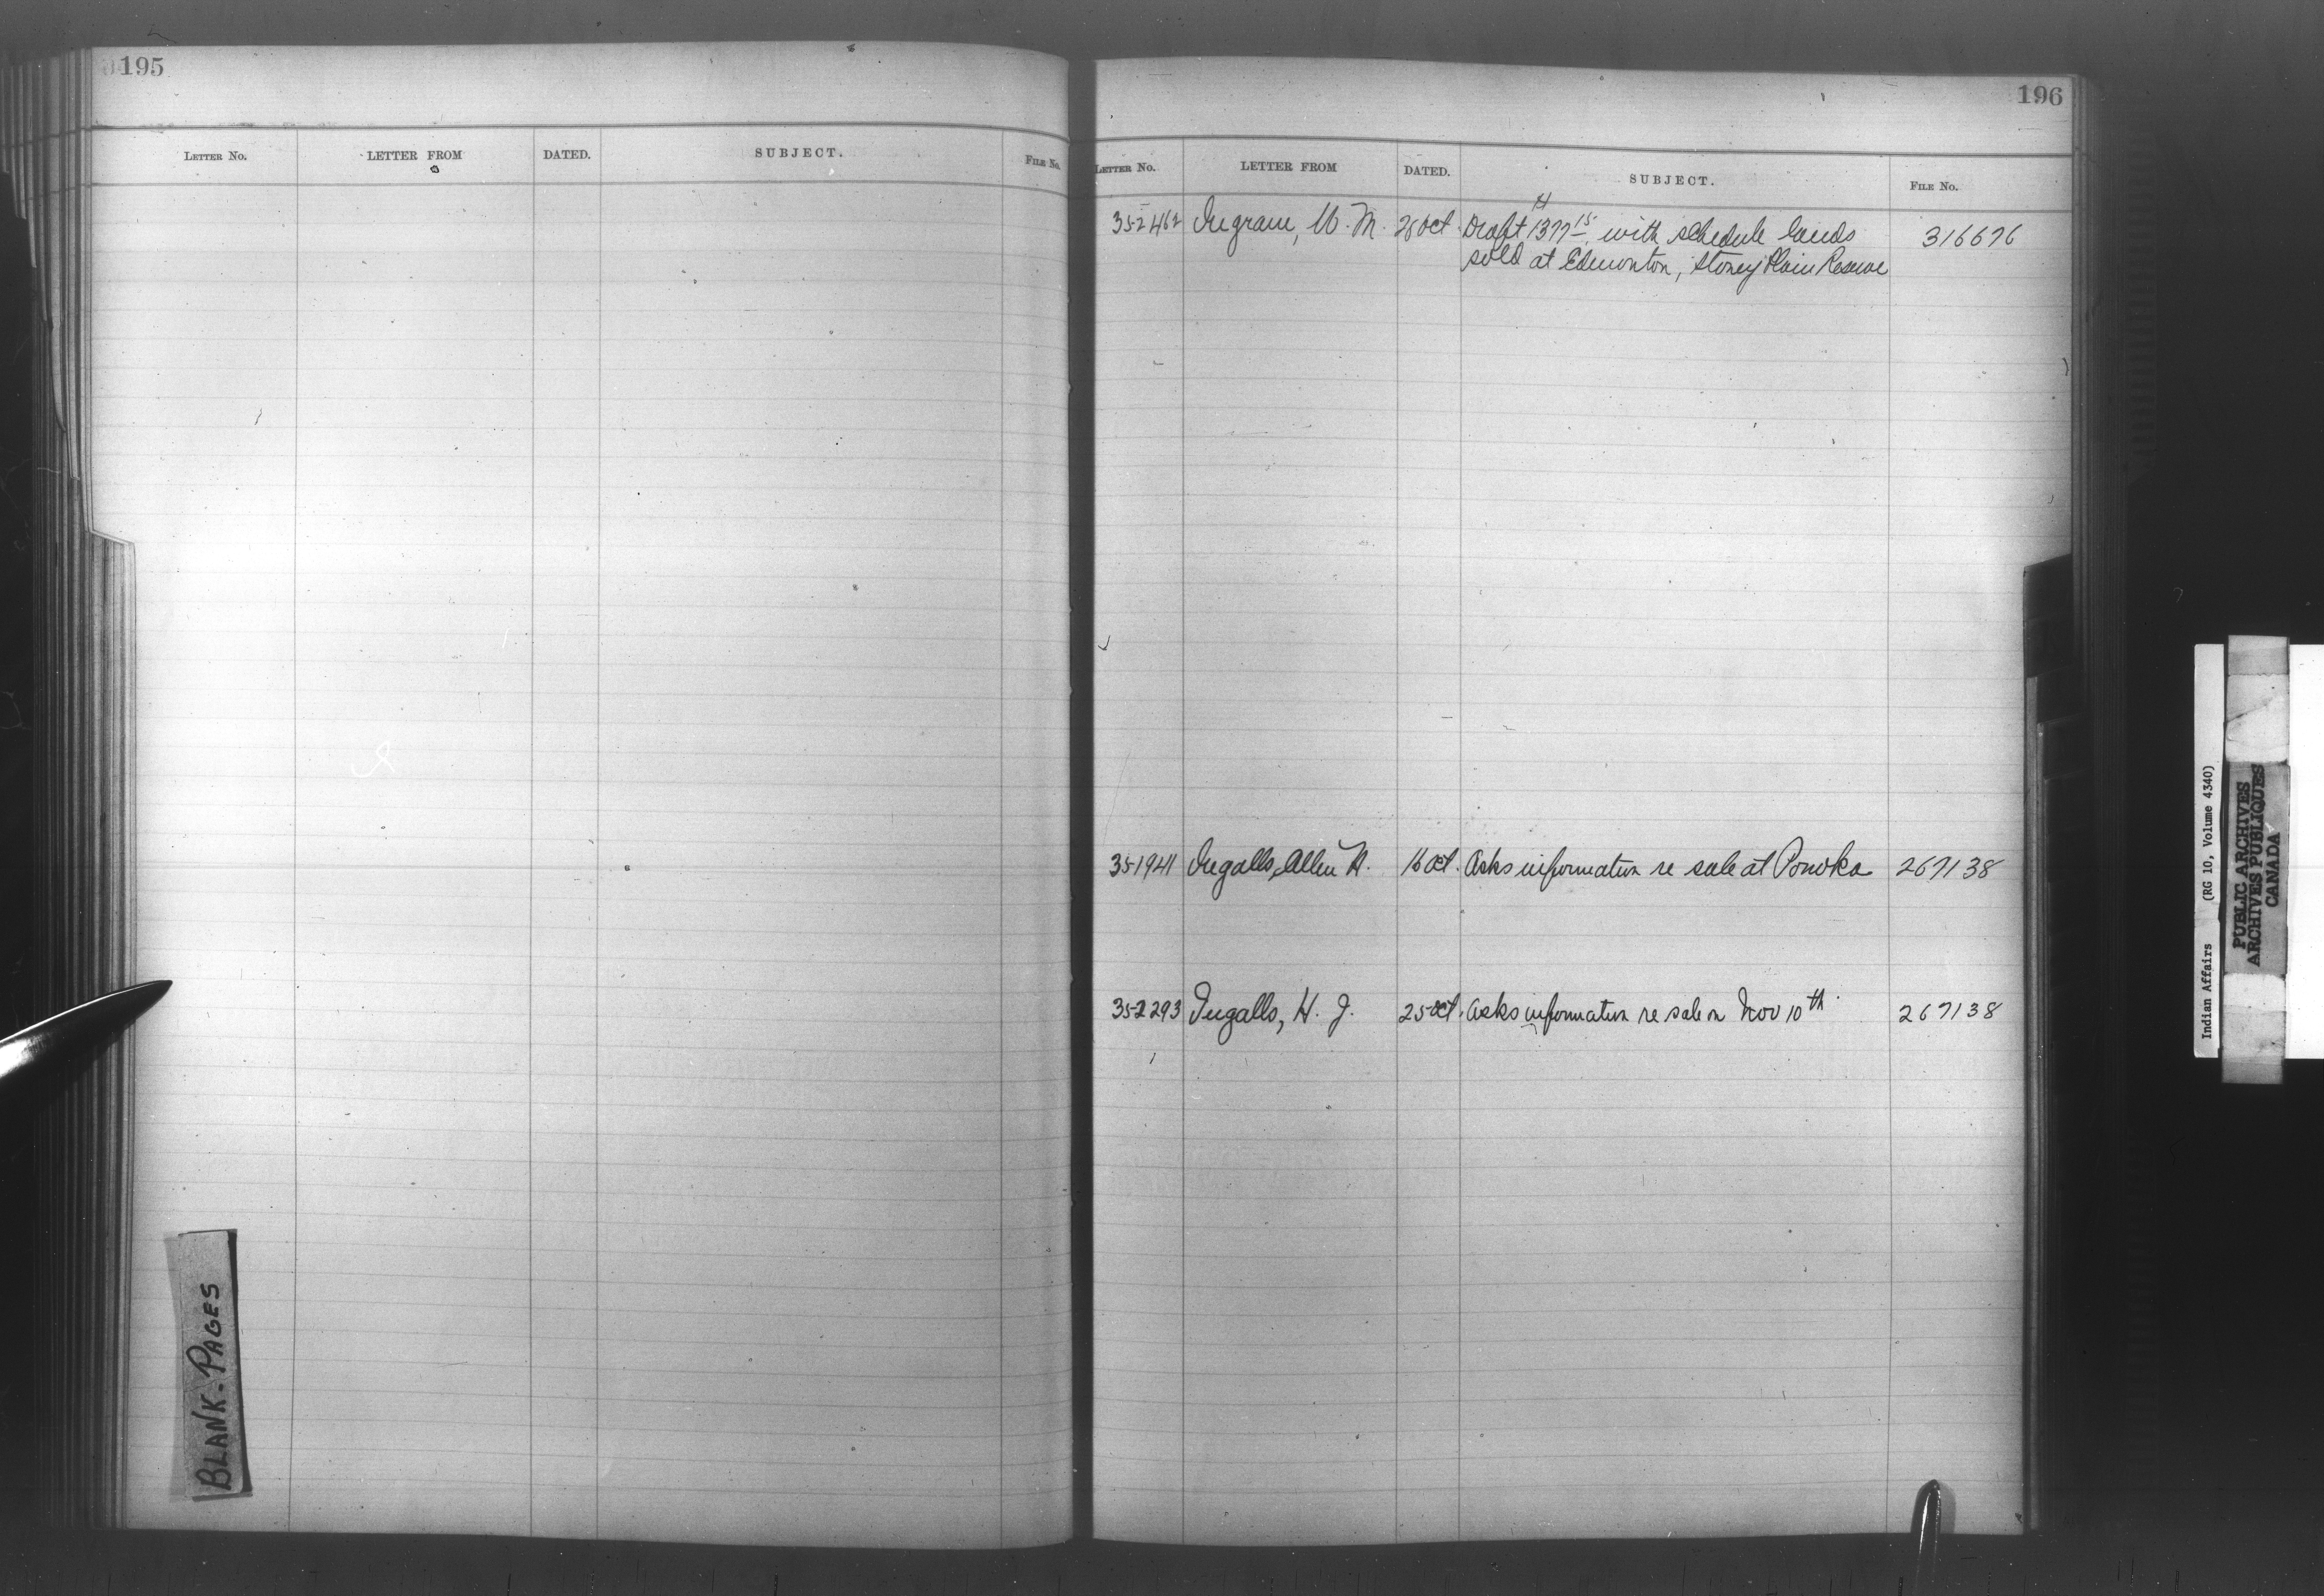 195
LETTER No. LETTER FROM DATED. SUBJECT. FILE No.
BLANK-PAGES
196
LETTER No. LETTER FROM DATED. SUBJECT. FILE No.
352462 Ingram, W. M. 28 Oct. Draft 1377 15 with schedule lands 316676
sold at Edmonton, Stoney Plain Reserve
351941 Ingalls, Allen N. 16 Oct. Asks information re sale at Ponoka 267138
352293 Ingalls, H. J. 25 Oct. Asks information re sale on Nov 10th 267138
Indian Affairs (RG 10, Volume 4340)
PUBLIC ARCHIVES
ARCHIVES PUBLIQUES
CANADA